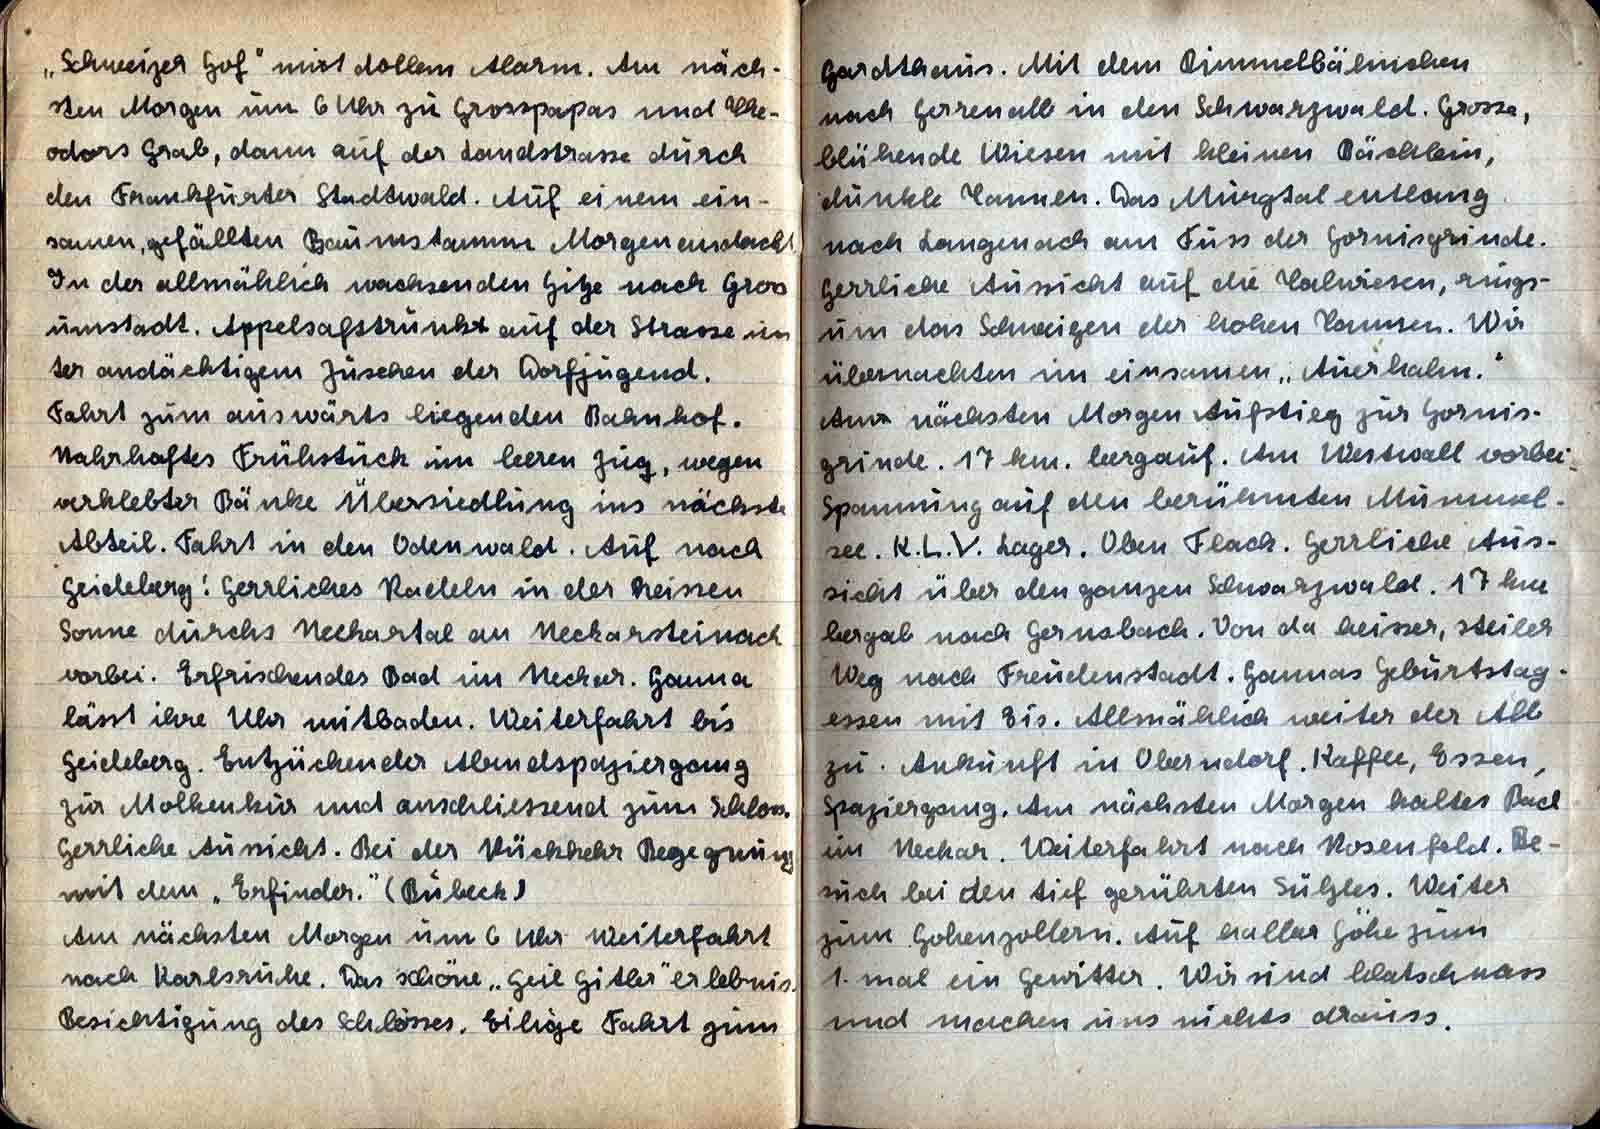 „Schweizer Hof“ mit dollem Alarm. Am näch-
sten Morgen um 6 Uhr zu Grosspapas und The-
odors Grab, dann auf der Landstrasse durch
den Frankfurter Stadtwald. Auf einem ein-
samen, gefällten Baumstamm Morgenandacht
In der allmählich wachsenden Hitze nach Gross
umstadt. Appelsaftstrunkt auf der Strasse un
ter andächtigem Zuschen der Dorfjugend.
Fahrt zum auswärts liegenden Bahnhof.
Nahrhaftes Frühstück im leeren Zug, wegen
verklebter Bänke Übersiedlung ins nächste
Abteil. Fahrt in den Odenwald. Auf nach
Heideberg! Herrliches Radeln in der heissen
Sonne durchs Neckartal an Neckarsteinach
vorbei. Erfrischendes Bad im Neckar. Hanna
lässt ihre Uhr mitbaden. Weiterfahrt bis
Heideberg. Entzückender Abendspaziergang
zur Molkenkur und anschliessend zum Schloss.
Herrliche Aussicht. Bei der Rückkehr Begegnung
mit dem „Erfinder.“ (Bübeck)
Am nächsten Morgen um 6 Uhr Weiterfahrt
nach Karlsruhe. Das schöne „Heil Hitler“ erlebnis.
Besichtigung des Schlosses. Eilige Fahrt zum
Hardthaus. Mit dem Bimmelbähnchen
nach Herrenalb in den Schwarzwald. Grosse,
blühende Wiesen mit kleinen Bächlein,
dunkle Tannen. Das Murgtal entlang
nach Langenach am Fuss der Hornisgrinde.
Herrliche Aussicht auf die Talwiesen, rings-
um das Schweigen der hohen Tannen. Wir
übernachten im einsamen „Auerhahn.“
Am nächsten Morgen Aufstieg zur Hornis-
grinde. 17 km. bergauf. Am Westwall vorbei.
Spannung auf den berühmten Mummel-
see. K.L.V. Lager. Oben Flach. Herrliche Aus-
sicht über den ganzen Schwarzwald. 17 km
bergab nach Gernsbach. Von da heisser, steiler
Weg nach Freudenstadt. Hannas Geburtstag-
essen mit Eis. Allmählich weiter der Alb
zu. Ankunft in Oberndorf. Kaffee, Essen,
Spaziergang. Am nächsten Morgen kaltes Bad
im Neckar. Weiterfahrt nach Rosenfeld. Be-
such bei den tief gerührten Sülzles. Weiter
zum Hohenzollern. Auf halber Höhe zum
1. mal ein Gewitter. Wir sind klatschnass
und machen uns nichts drauss.